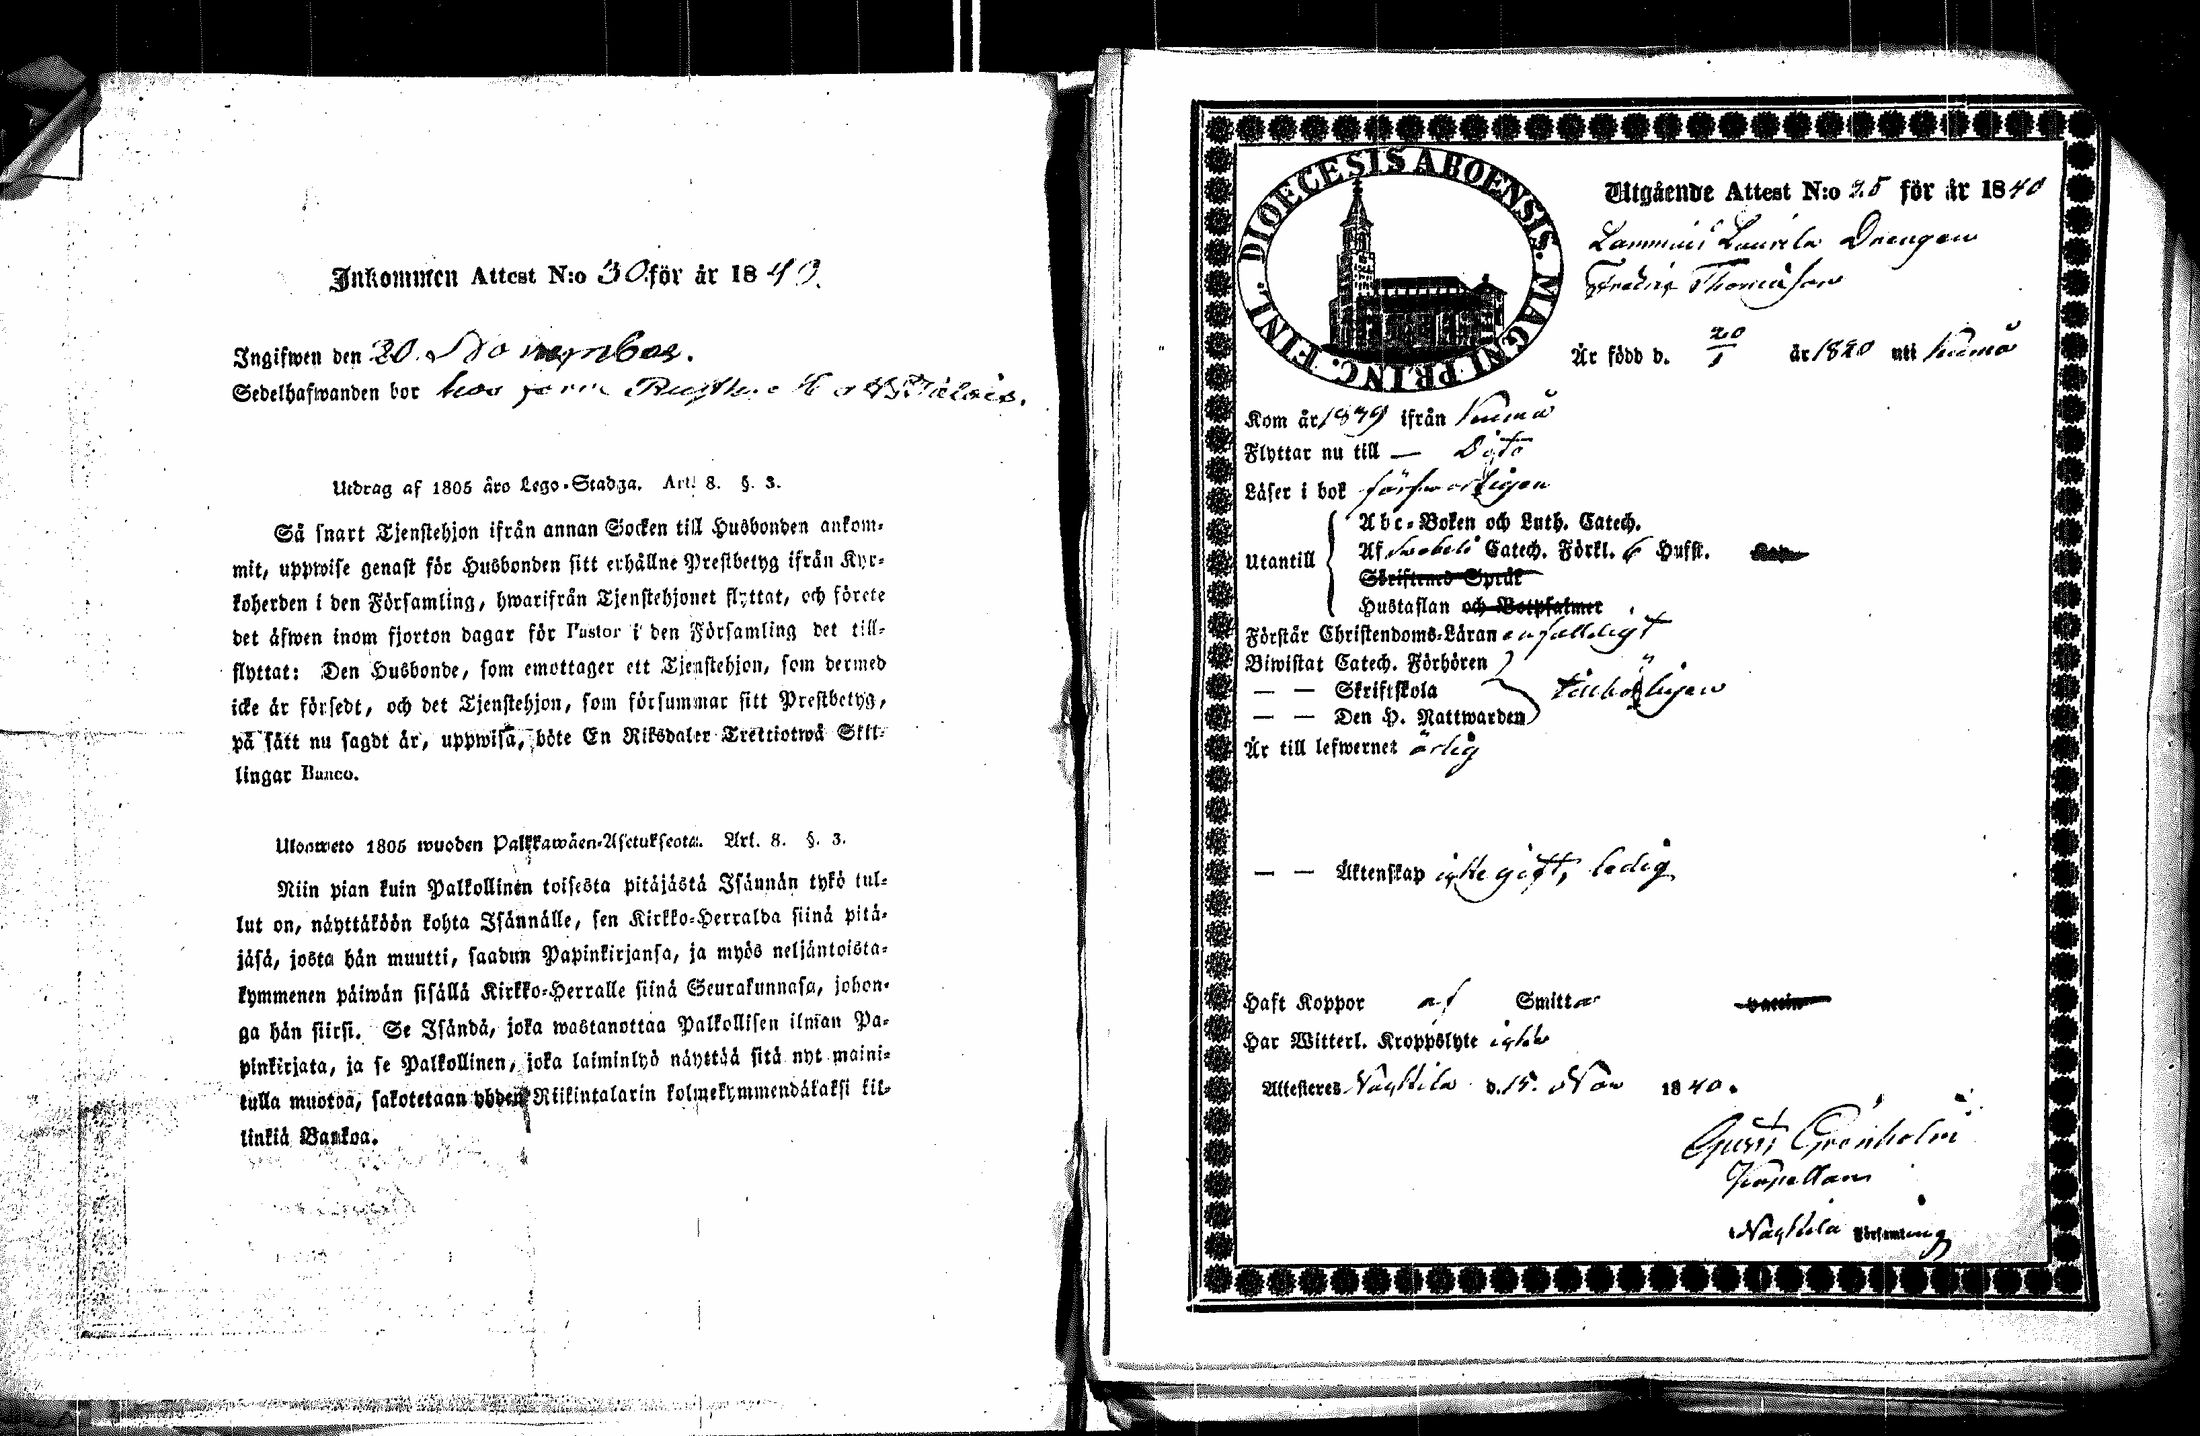 Inkommen Attest N:o 30 för år 1840.
Ingifwen den 20 November.
Sedelhafwanden bor hos
Utdrag af 1805 års Lego-Stadga. Art. 8. §. 3.
Så snart Tjenstehjon ifrån annan Socken till Husbonden ankom-
mit, uppwise genast för Husbonden sitt erhållne Prestbetyg ifrån Kyr-
koherden i den Församling, hwarifrån Tjenstehjonet flyttat, och förete
det äfwen inom fjorton dagar för Pastor i den Församling det till-
flyttat: Den Husbonde, som emottager ett Tjenstehjon, som dermed
icke är försedt, och det Tjenstehjon, som försummar sitt Prestbetyg,
på sätt nu sagdt är, uppwisa, böte En Riksdaler Trettiotwå Skil-
lingar Banco.
Ulosweto 1805 wuoden Palkkawäen-Asetuksesta. Art. 8. §. 3.
Niin pian kuin Palkollinen toisesta pitäjästä Isännän tykö tul-
lut on, näyttäköön kohta Isännälle, sen Kirkko-Herralda siinä pitä-
jäsä, josta hän muutti, saadun Papinkirjansa, ja myös neljäntoista-
kymmenen päiwän sisällä Kirkko-Herralle siinä Seurakunnasa, johon-
ga hän siirsi. Se Isändä, joka wastanottaa Palkollisen ilman Pa-
pinkirjata, ja se Palkollinen, joka laiminlyö näyttää sitä nyt maini-
tulla muotoa, sakotetaan yhden Riikintalarin kolmekymmendäkaksi kil-
linkiä Bankoa.
DIOECESIS ABOENSIS. MAGNI PRINC. FINL.
Utgående Attest N:o 25 för år 1840
Lammais Laurila Drengen
Fredric Thomasson
Är född d. 20/1 år 1820 uti Kumå
Kom år 1839 ifrån Kumå
Flyttar nu till —
Läser i bok förswarligen
Utantill
Abc-Boken och Luth. Catech.
Af Swebelii Catech. Förkl. 6 Hufst. Kap.
Skriftenes Språk
Hustaflan och Botpsalmer
Förstår Christendoms-Läran enfalldigt
Biwistat Catech. Förhören
— — Skriftskola tillbörligen
— — Den H. Nattwarden
Är till lefwernet ärlig
— — Äktenskap icke gift, ledig
Haft Koppor af Smitta vaccin
Har Witterl. Kroppslyte icke
Attesteras Nakkila d. 15. Nov 1840.
Gust. Grönholm
Kapellan
Nakkila Församling